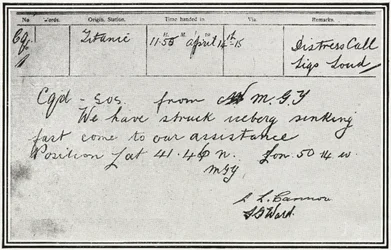 No. Words. Origin. Station. Time handed in Via. Remarks.
Titanic 11.50 H. M. April 14th-15 Distress Call
Sigs Loud
Cqd - SOS. from M.G.Y
We have struck iceberg sinking
fast come to our assistance
Position Lat 41.46 n. Lon. 50.14 w.
MGY